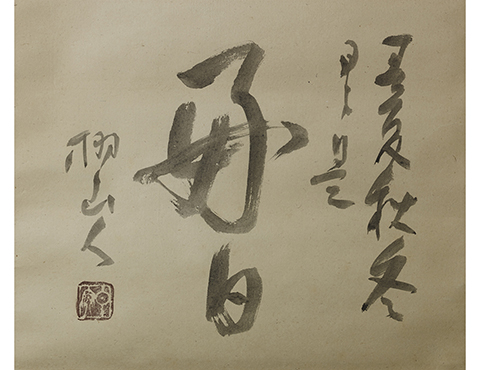 春夏秋冬
日々是
好日
山人